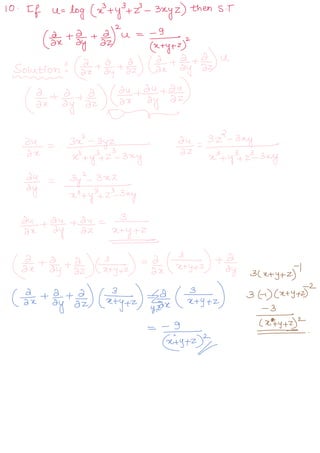 10. If u = log (x³+y³+z³ - 3xyz) then S T
(∂/∂x + ∂/∂y + ∂/∂z)² u = -9/(x+y+z)²
Solution: (∂/∂x + ∂/∂y + ∂/∂z)(∂/∂x + ∂/∂y + ∂/∂z) u
(∂/∂x + ∂/∂y + ∂/∂z)(∂u/∂x + ∂u/∂y + ∂u/∂z)
∂u/∂x = 3x² - 3yz / x³+y³+z³-3xy ∂u/∂z = 3z² - 3xy / x³+y³+z³-3xy
∂u/∂y = 3y² - 3xz / x³+y³+z³-3xy
∂u/∂x + ∂u/∂y + ∂u/∂z = 3/x+y+z
(∂/∂x + ∂/∂y + ∂/∂z)(3/x+y+z) = ∂/∂x (3/x+y+z) + ∂/∂y
(∂/∂x + ∂/∂y + ∂/∂z)(3/x+y+z) = ∂/∂x (3/x+y+z)
= -9/(x+y+z)²
3(x+y+z)⁻¹
3(-1)(x+y+z)⁻²
-3/(x+y+z)²